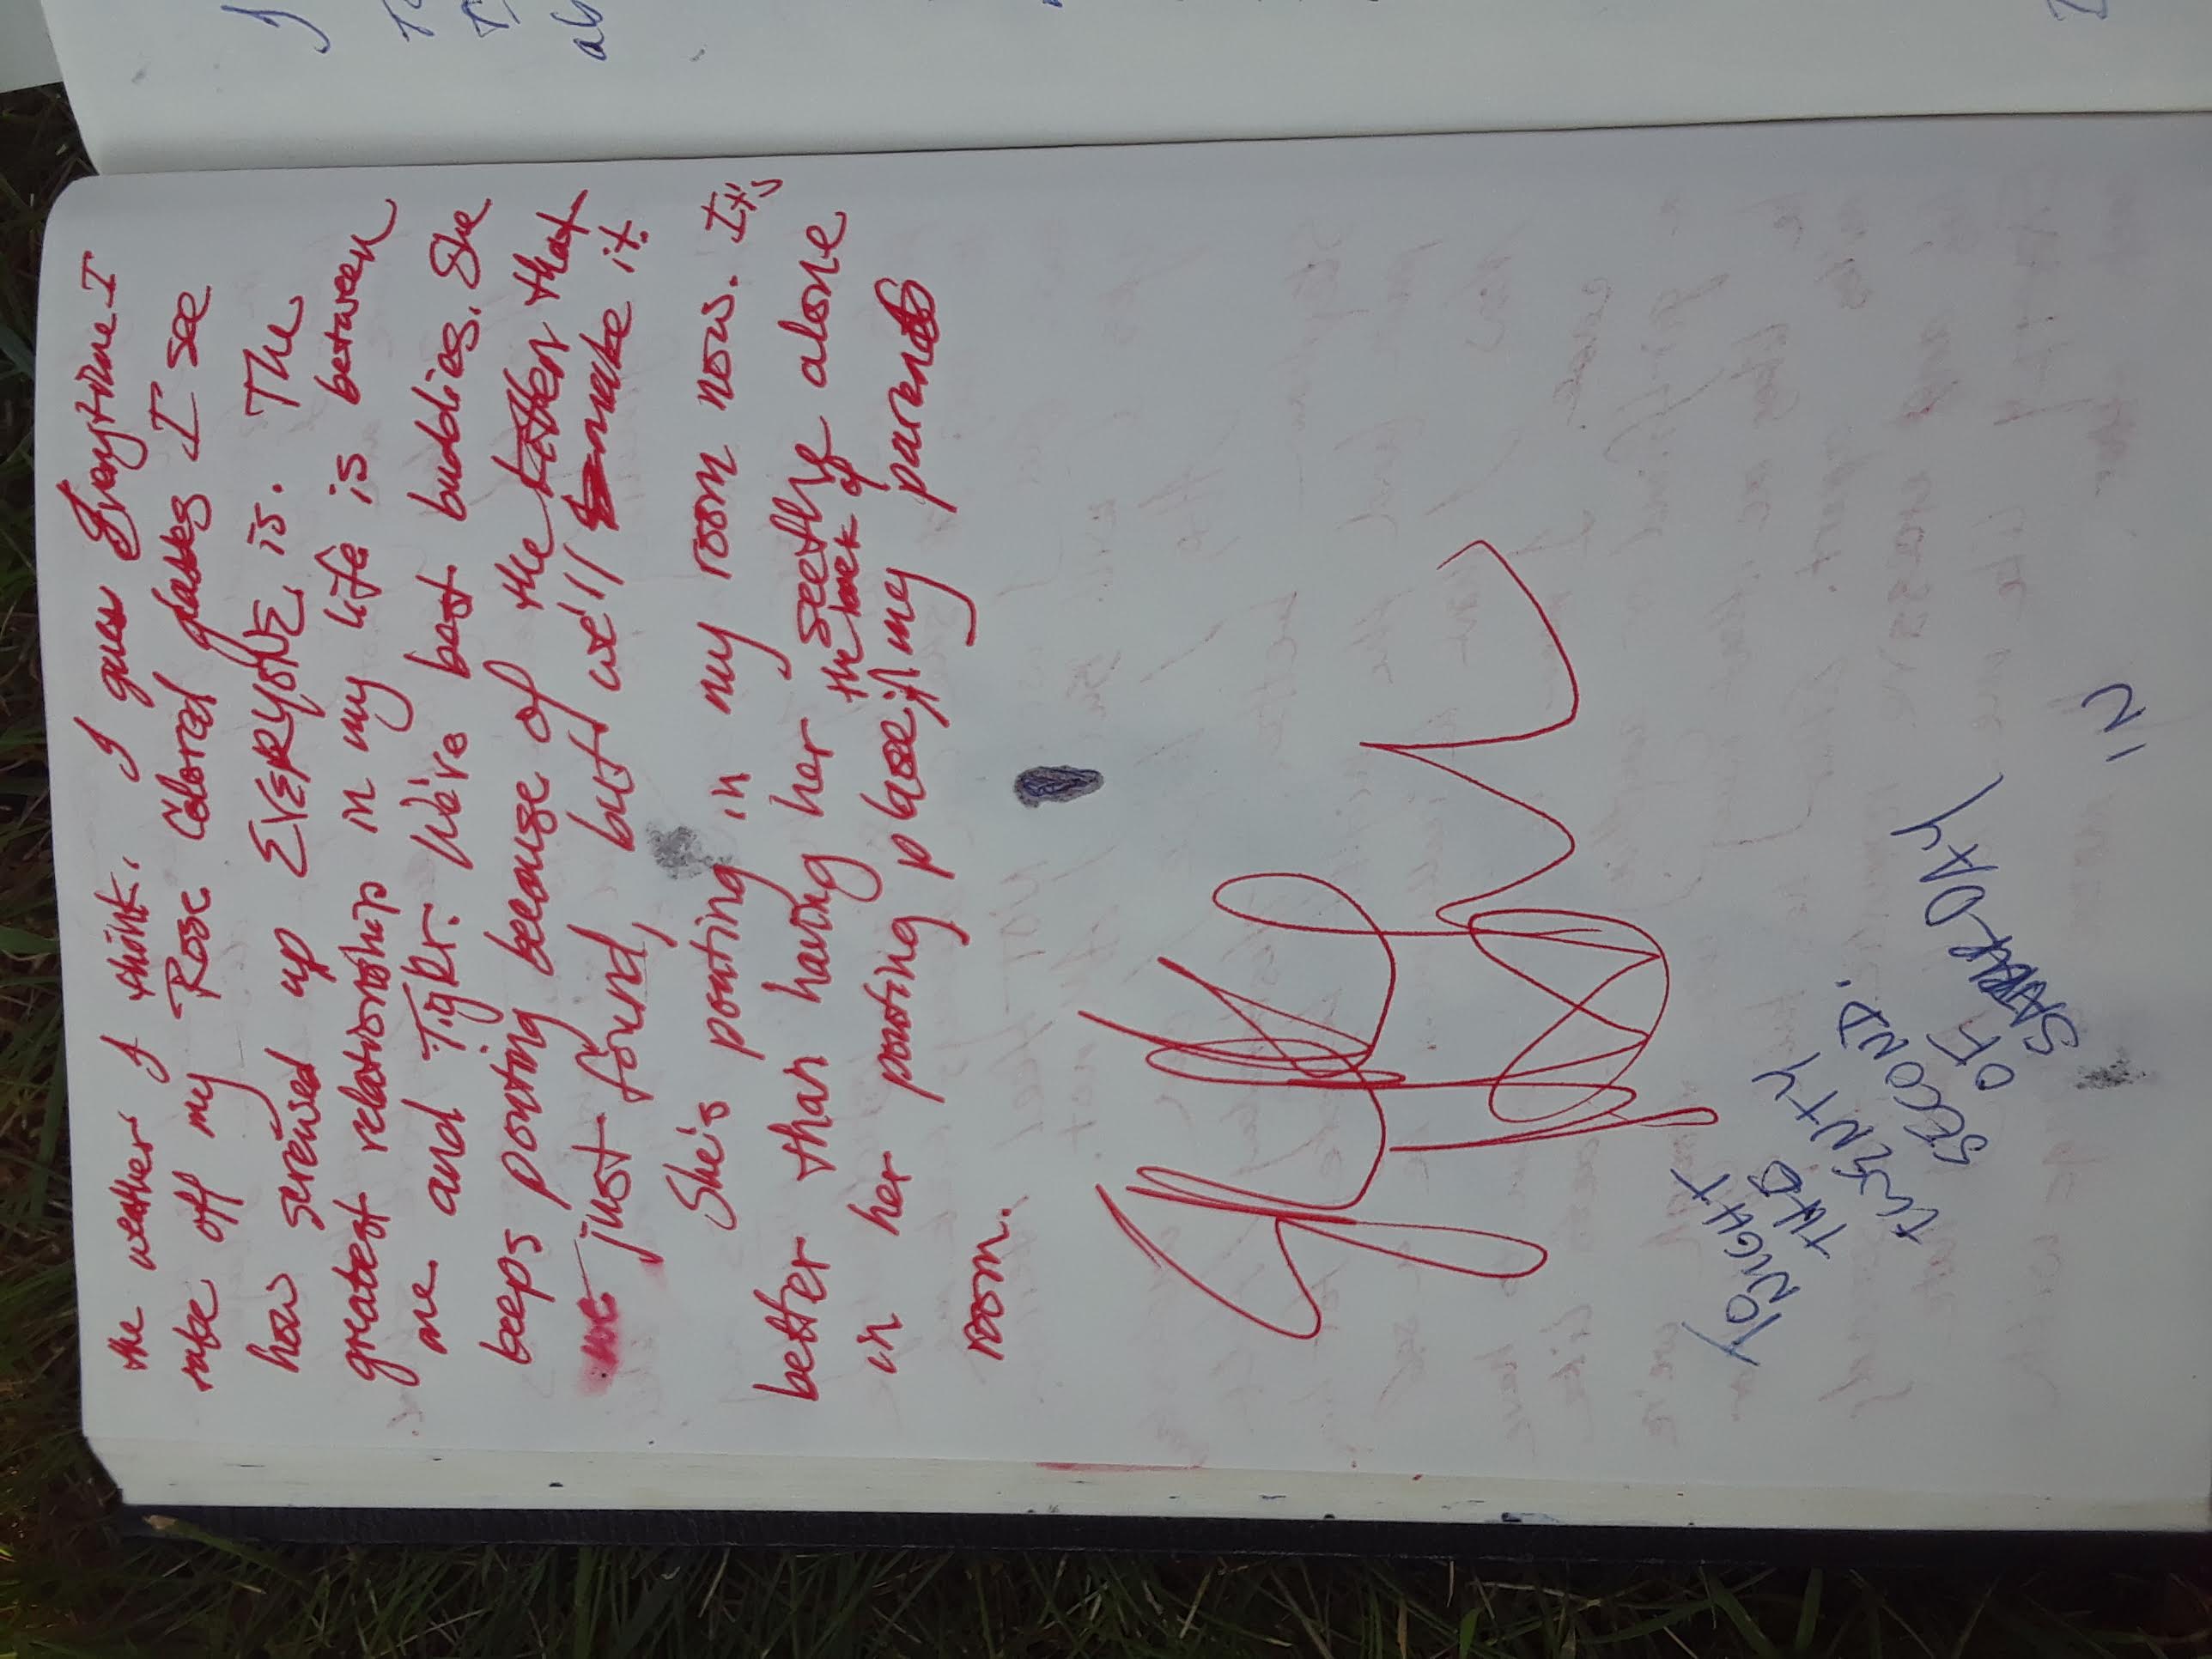 the weather I think. I guess Everytime I
take off my Rose Colored glasses I see
how screwed up EVERYONE is. The
greatest relationship in my life is between
me and Tiger. We're best buddies. She
keeps pouting because of the kitten that
we just found, but we'll make it.
She's pouting in my room now. It's
better than having her seethe alone
in her pouting place in the back of my parents
room.
TONIGHT
THE
TWENTY
SECOND.
OF
SATURDAY
IN